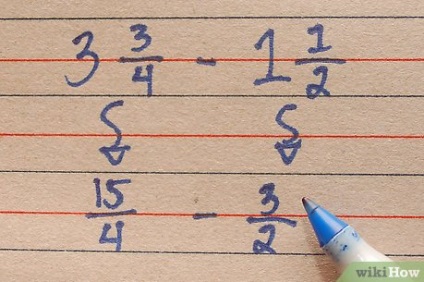 3 3/4 - 1 1/2
15/4 - 3/2
wikiHow